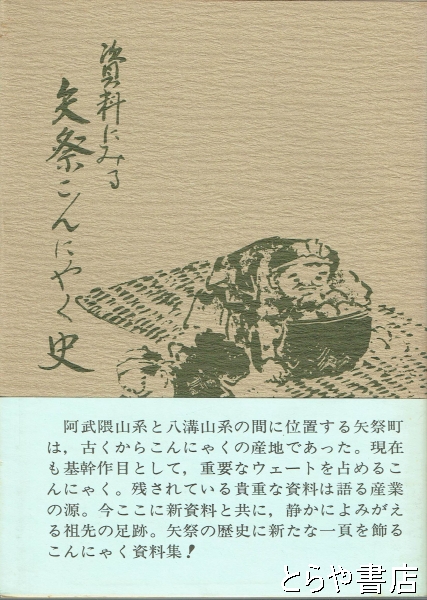 資料にみる
矢祭こんにゃく史
阿武隈山系と八溝山系の間に位置する矢祭町
は，古くからこんにゃくの産地であった。現在
も基幹作目として，重要なウェートを占めるこ
んにゃく。残されている貴重な資料は語る産業
の源。今ここに新資料と共に，静かによみがえ
る祖先の足跡。矢祭の歴史に新たな一頁を飾る
こんにゃく資料集！
とらや書店